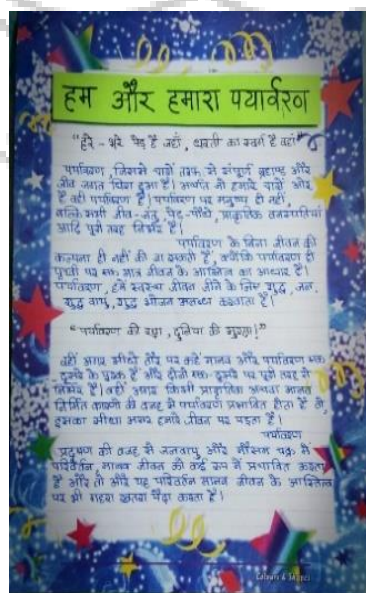 हम और हमारा पर्यावरण
"हरे - भरे पेड़ है जहाँ, धरती का स्वर्ग है वहाँ"
पर्यावरण, जिसमे चारों तरफ से संपूर्ण ब्रह्माण्ड और
जीव जगत घिरा हुआ है। अर्थात जो हमारे चारों ओर
है वही पर्यावरण है। पर्यावरण पर मनुष्य ही नहीं,
बल्कि सभी जीव-जंतु, पेड़-पौधे, प्राकृतिक वनस्पतियां
आदि पूरी तरह निर्भर हैं।
पर्यावरण के बिना जीवन की
कल्पना ही नहीं की जा सकती है, क्योंकि पर्यावरण ही
पृथ्वी पर एक मात्र जीवन के आस्तित्व का आधार है।
पर्यावरण, हमें स्वस्थ जीवन जीने के लिए शुद्ध, जल,
शुद्ध वायु, शुद्ध भोजन उपलब्ध करवाता है।
"पर्यावरण की रक्षा, दुनिया की सुरक्षा!"
वहीं अगर सीधे तौर पर कहें मानव और पर्यावरण एक
दूसरे के पूरक हैं और दोनों एक-दूसरे पर पूरी तरह से
निर्भर हैं। वहीं अगर किसी प्राकृतिक अथवा मानव
निर्मित कारणों की वजह से पर्यावरण प्रभावित होता है तो,
इसका सीधा असर हमारे जीवन पर पड़ता है।
पर्यावरण
प्रदूषण की वजह से जलवायु और मौसम चक्र में
परिवर्तन, मानव जीवन को कई रूप में प्रभावित करता
है और तो और यह परिवर्तन मानव जीवन के आस्तित्व
पर भी गहरा खतरा पैदा करता है।